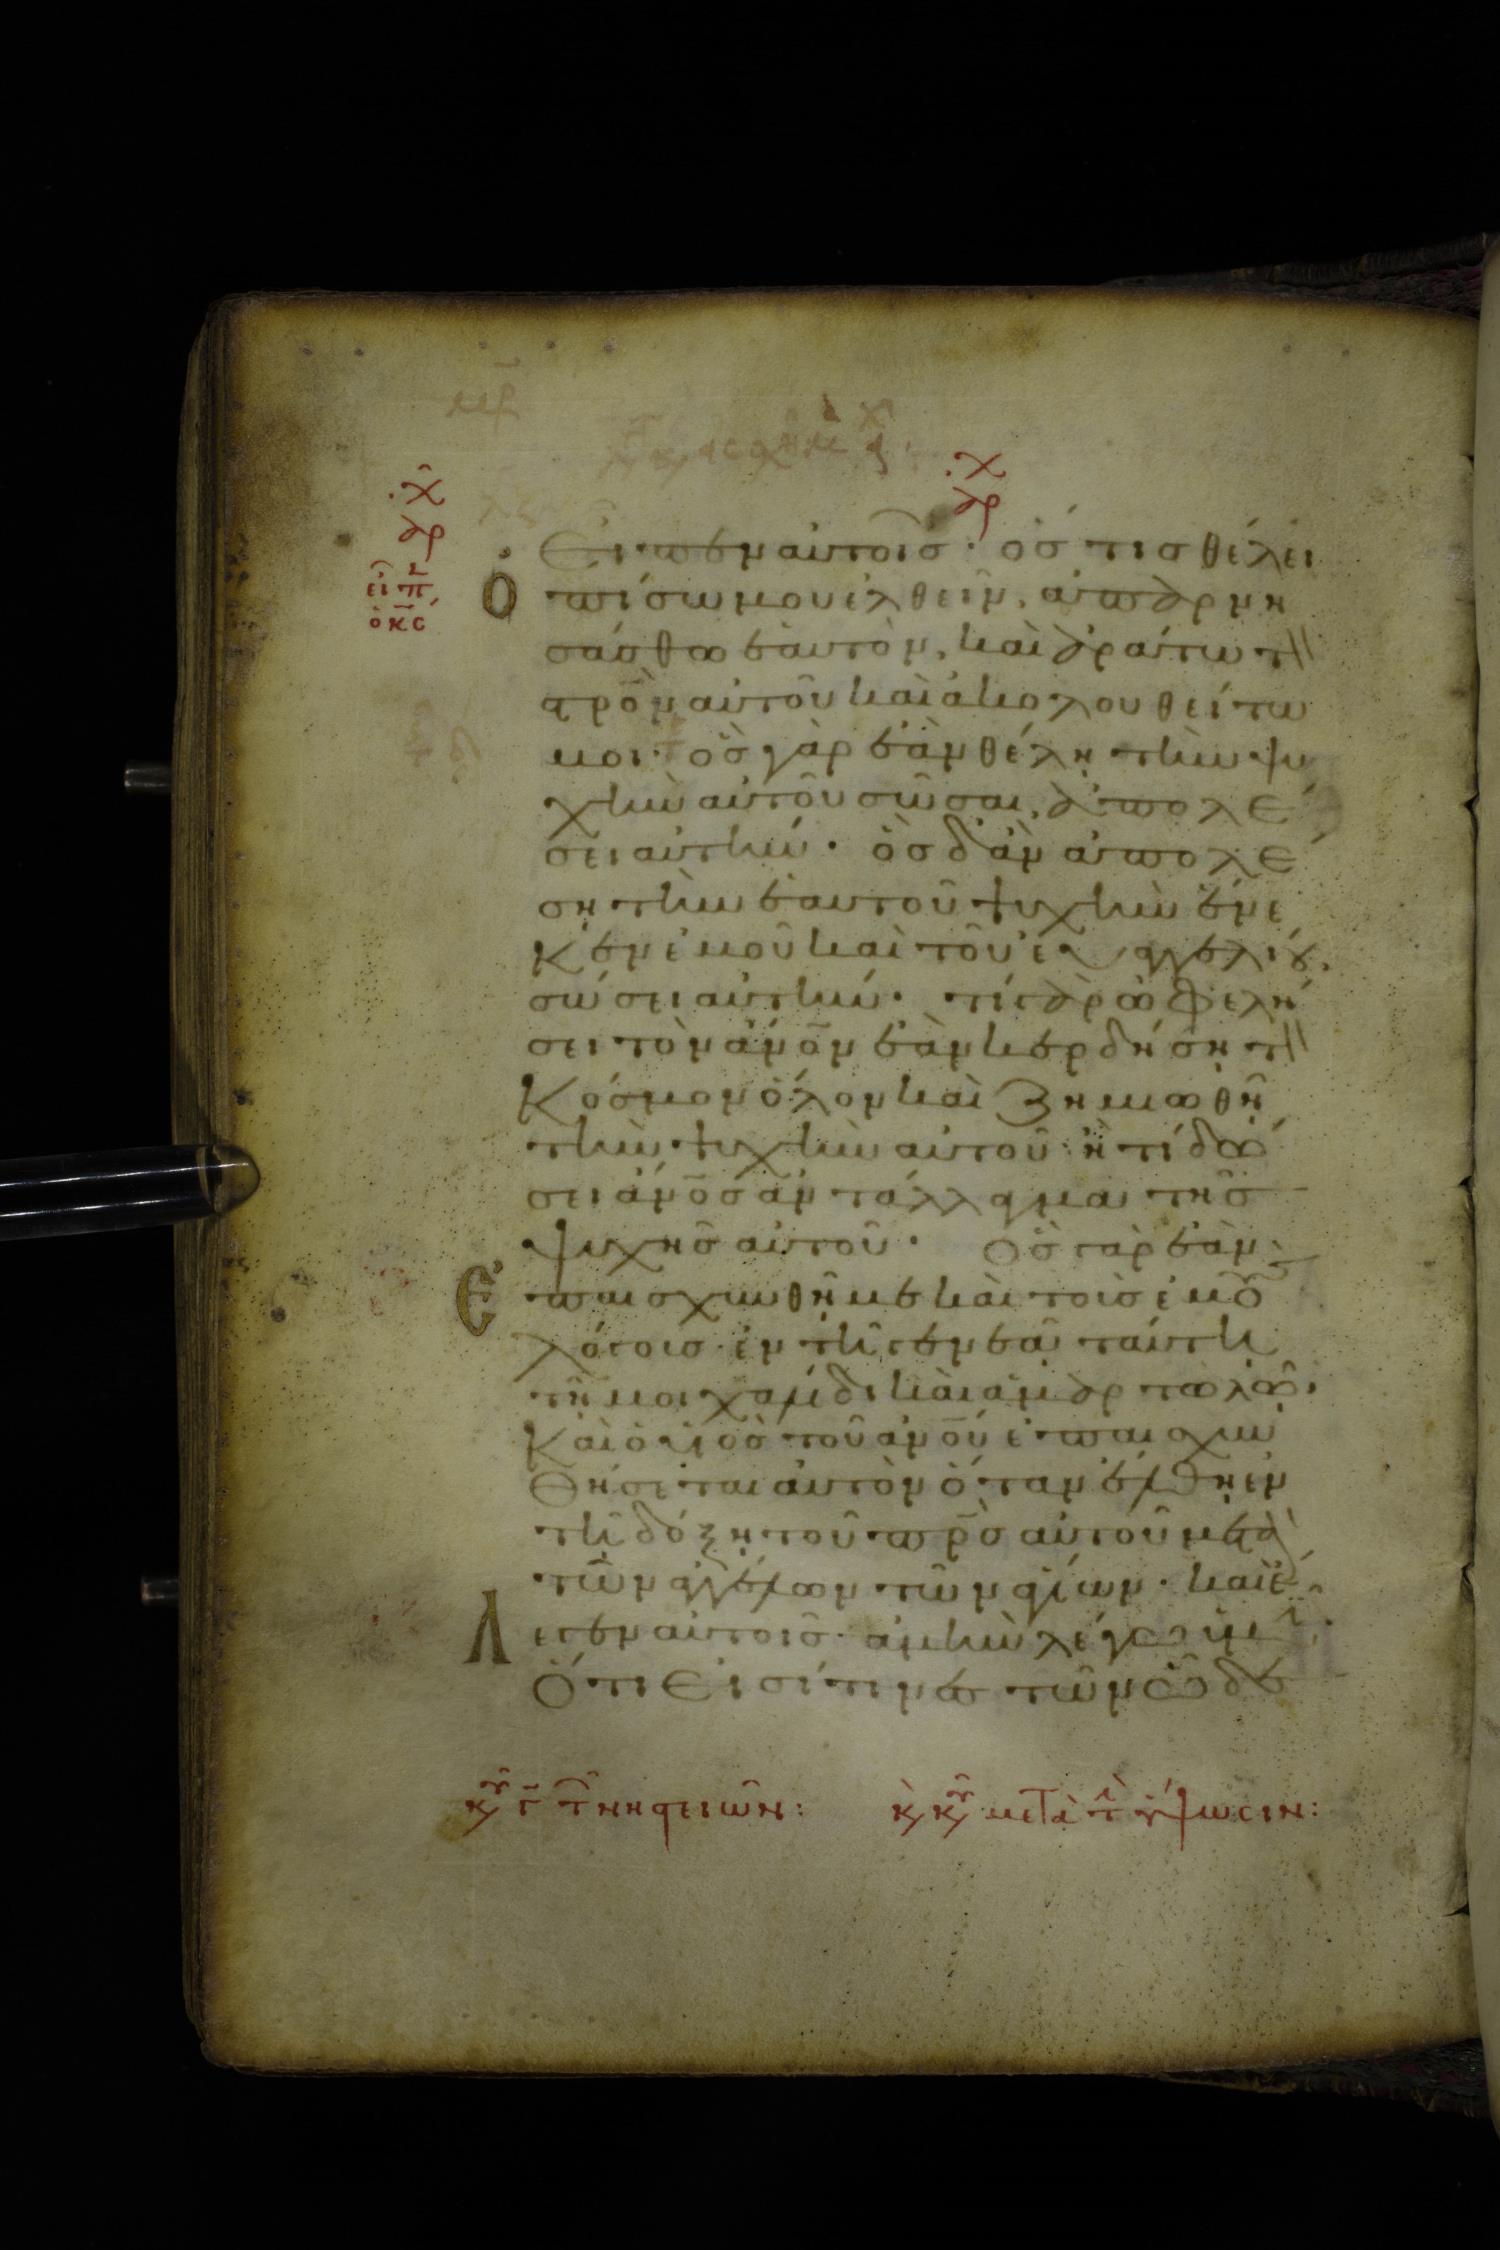 .χ
αρ
.χ
αρ
εἶπ
ὁ κς
εἶπεν αὐτοῖς· ὅστις θέλει
ὀπίσω μου ἐλθεῖν, ἀπαρνη
σάσθω ἑαυτὸν, καὶ ἀράτω τ̀
στρο̅ν αὐτοῦ καὶ ἀκολουθείτω
μοι· ὃς γὰρ ἐὰν θέλη τὴν ψυ
χὴν αὐτοῦ σῶσαι, ἀπολέ
σει αὐτήν· ὃς δ ἂν ἀπολέ
ση τὴν ἑαυτοῦ ψυχὴν ἕνε
κεν ἐμοῦ καὶ τοῦ εὐαγγελίου,
σώσει αὐτήν· τί γὰρ ὠφελή
σει τὸν ἄνο̅ν ἐὰν κερδήση τ̀
κόσμον ὅλον καὶ ζημιωθῆ
τὴν ψυχὴν αὐτοῦ· ἢ τί δώ
σει ἄνο̅ς ἀντάλλαγμα τῆς
ψυχῆς αὐτοῦ· ὃς γὰρ ἐὰν
ἐπαισχυνθῆ με καὶ τοὺς ἐμοὺς
λόγους ἐν τῆ γενεᾶ ταύτη
τῆ μοιχαλίδι καὶ ἁμαρτωλῶ,
καὶ ὁ υἱὸς τοῦ ἀνο̅ύ ἐπαισχυν
θήσεται αὐτὸν ὅταν ἔλθη ἐν
τῆ δόξη τοῦ πρ̅ς αὐτοῦ μετὰ
τῶν ἀγγέλων τῶν ἁγίων· καὶ ἔ
λεγεν αὐτοῖς· ἀμὴν λέγω ὑμῖ·
ὅτι εἰσί τινες τῶν ὧδε
κυ γ τ νηστειῶν: κ κυ μετὰ τ ὕψωσιν: